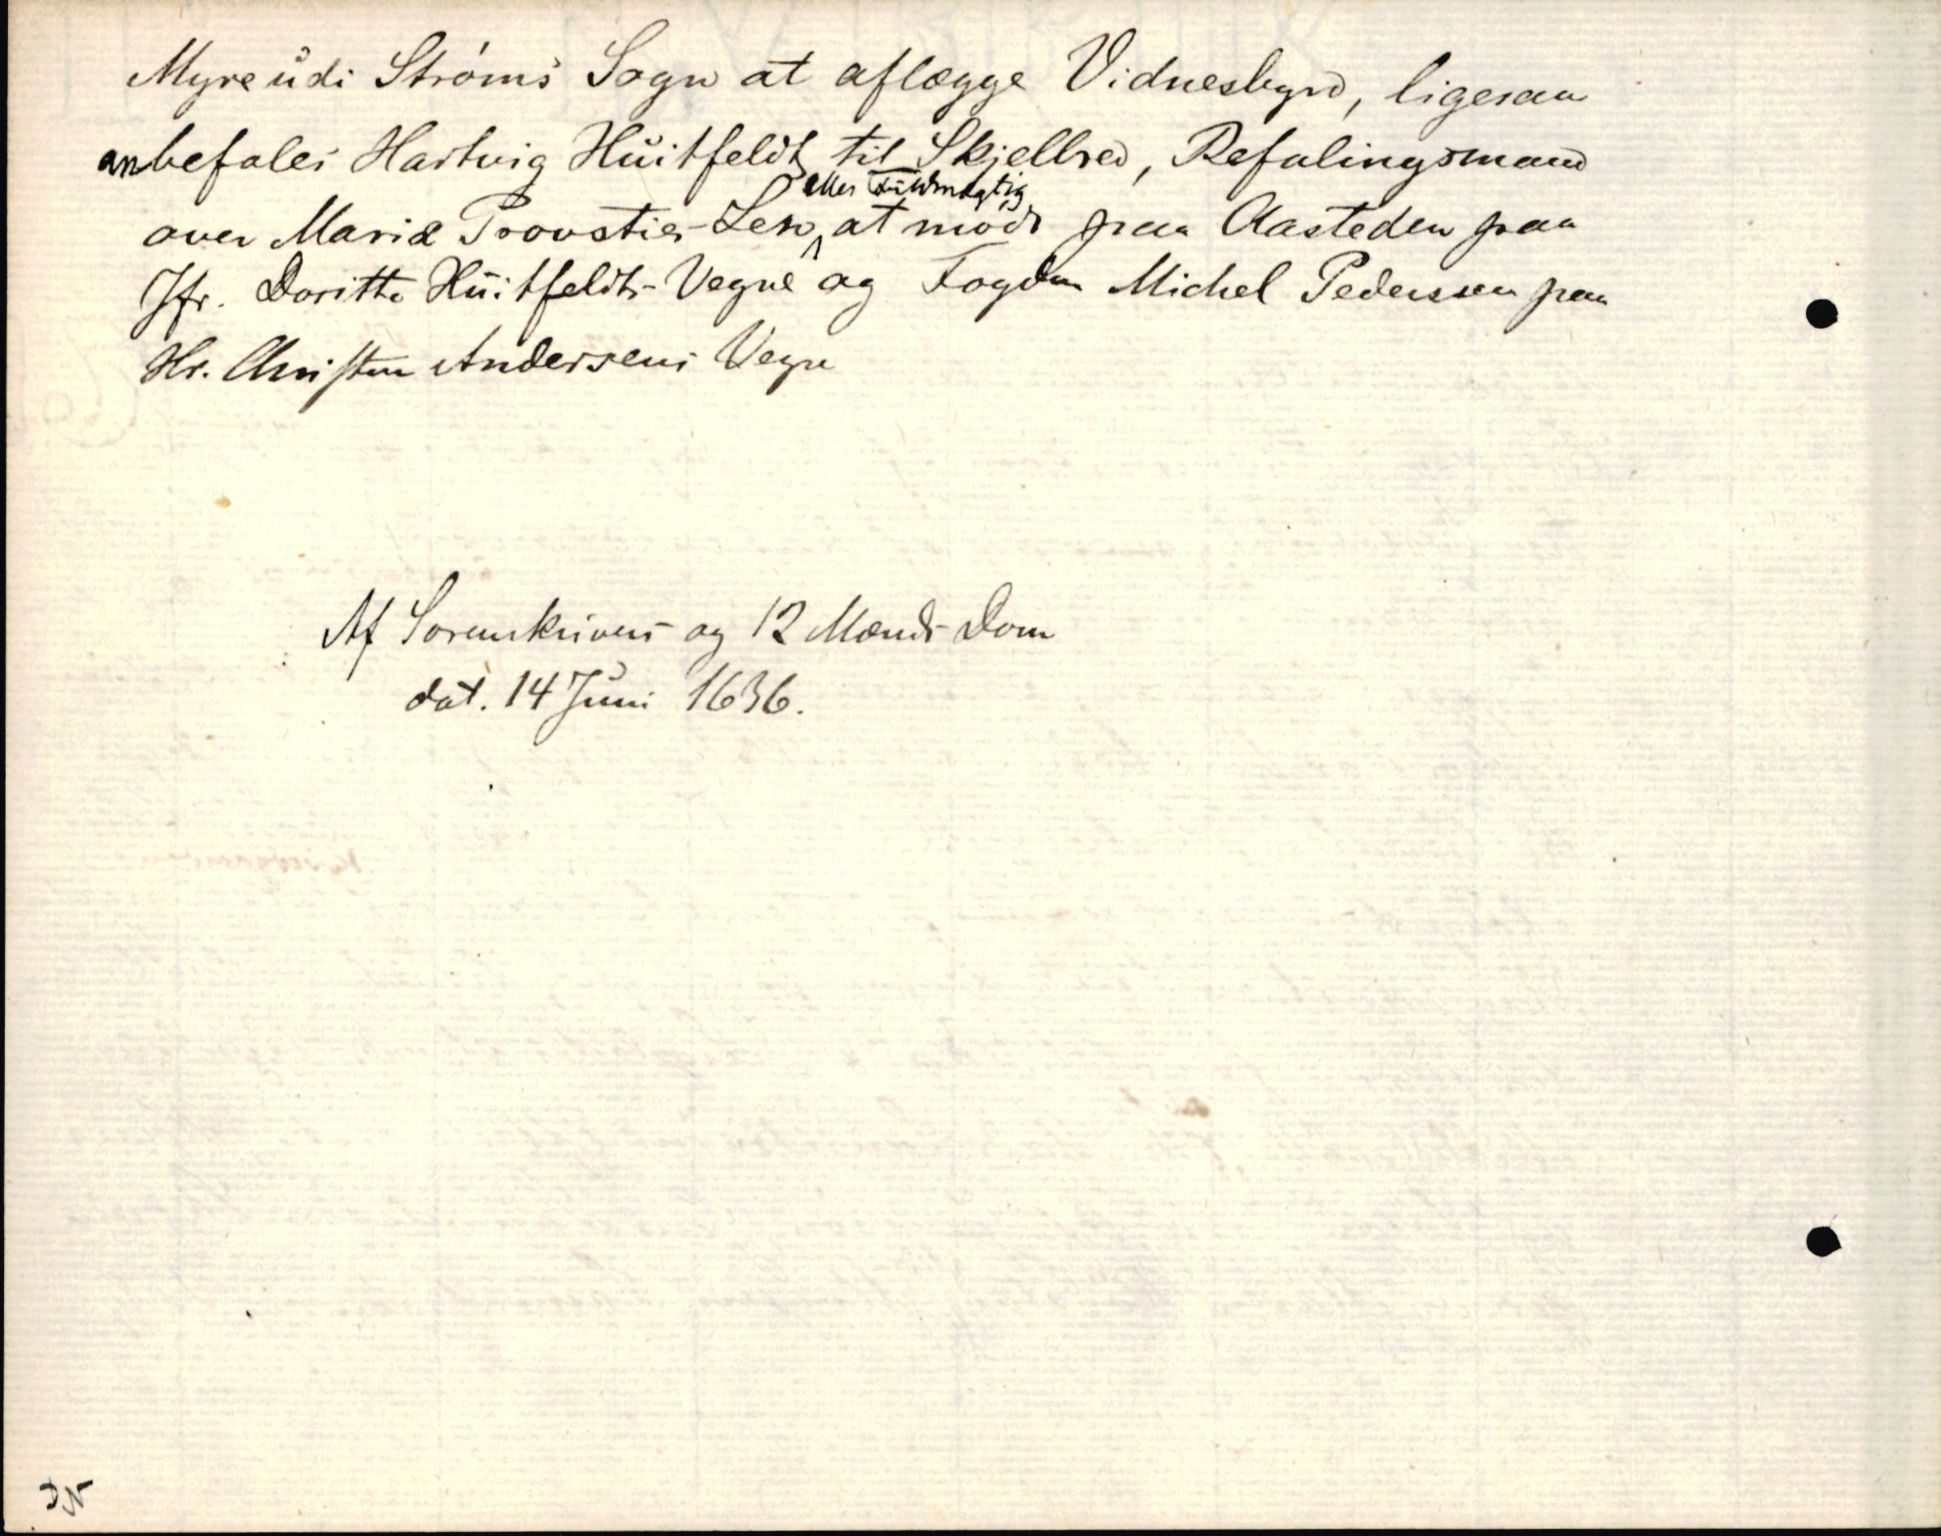 Myre udi Strøms Sogn at aflægge Vidnesbyrd, ligesaa
anbefales Hartvig Huitfeldt til Skjellsed, Befalingsmand
over Mariæ Provsties Len, eller Fuldmægtig at møde paa Aasteden paa
Jfr. Doritte Huitfeldts Vegne og Fogden Michel Pederssen paa
Hr. Christen Andersens Vegne
Af Sorenskrivers og 12 Mænds Dom
dat. 14 Juni 1636.